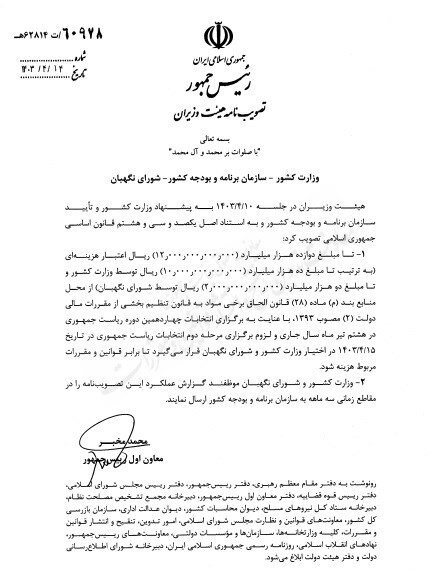 ۶۰۹۷۸/ت ۶۲۸۱۴هـ
شماره
تاریخ ۱۴۰۳/۴/۱۲
جمهوری اسلامی ایران
رئیس جمهور
تصویب نامه هیئت وزیران
بسمه تعالی
"با صلوات بر محمد و آل محمد"
وزارت کشور - سازمان برنامه و بودجه کشور- شورای نگهبان
هیئت وزیران در جلسه ۱۴۰۳/۴/۱۰ به پیشنهاد وزارت کشور و تأیید
سازمان برنامه و بودجه کشور و به استناد اصل یکصد و سی و هشتم قانون اساسی
جمهوری اسلامی ایران تصویب کرد:
۱- تا مبلغ دوازده هزار میلیارد (۱۲٫۰۰۰٫۰۰۰٫۰۰۰٫۰۰۰) ریال اعتبار هزینه‌ای
(به ترتیب تا مبلغ ده هزار میلیارد (۱۰٫۰۰۰٫۰۰۰٫۰۰۰٫۰۰۰) ریال توسط وزارت کشور و
تا مبلغ دو هزار میلیارد (۲٫۰۰۰٫۰۰۰٫۰۰۰٫۰۰۰) ریال توسط شورای نگهبان) از محل
منابع بند (م) ماده (۲۸) قانون الحاق برخی مواد به قانون تنظیم بخشی از مقررات مالی
دولت (۲) مصوب ۱۳۹۳، با عنایت به برگزاری انتخابات چهاردهمین دوره ریاست جمهوری
در هشتم تیر ماه سال جاری و لزوم برگزاری مرحله دوم انتخابات ریاست جمهوری در تاریخ
۱۴۰۳/۴/۱۵ در اختیار وزارت کشور و شورای نگهبان قرار می‌گیرد تا برابر قوانین و مقررات
مربوط هزینه شود.
۲- وزارت کشور و شورای نگهبان موظفند گزارش عملکرد این تصویب‌نامه را در
مقاطع زمانی سه ماهه به سازمان برنامه و بودجه کشور ارسال نمایند.
محمد مخبر
معاون اول رییس‌جمهور
رونوشت به دفتر مقام معظم رهبری، دفتر رییس‌جمهور، دفتر رییس مجلس شورای اسلامی،
دفتر رییس قوه قضاییه، دفتر معاون اول رییس‌جمهور، دبیرخانه مجمع تشخیص مصلحت نظام،
دبیرخانه ستاد کل نیروهای مسلح، دیوان محاسبات کشور، دیوان عدالت اداری، سازمان بازرسی
کل کشور، معاونت‌های قوانین و نظارت مجلس شورای اسلامی، امور تدوین، تنقیح و انتشار قوانین
و مقررات، کلیه وزارتخانه‌ها، سازمان‌ها و مؤسسات دولتی، معاونت‌های رییس‌جمهور،
نهادهای انقلاب اسلامی، روزنامه رسمی جمهوری اسلامی ایران، دبیرخانه شورای اطلاع‌رسانی
دولت و دفتر هیئت دولت ابلاغ می‌شود.